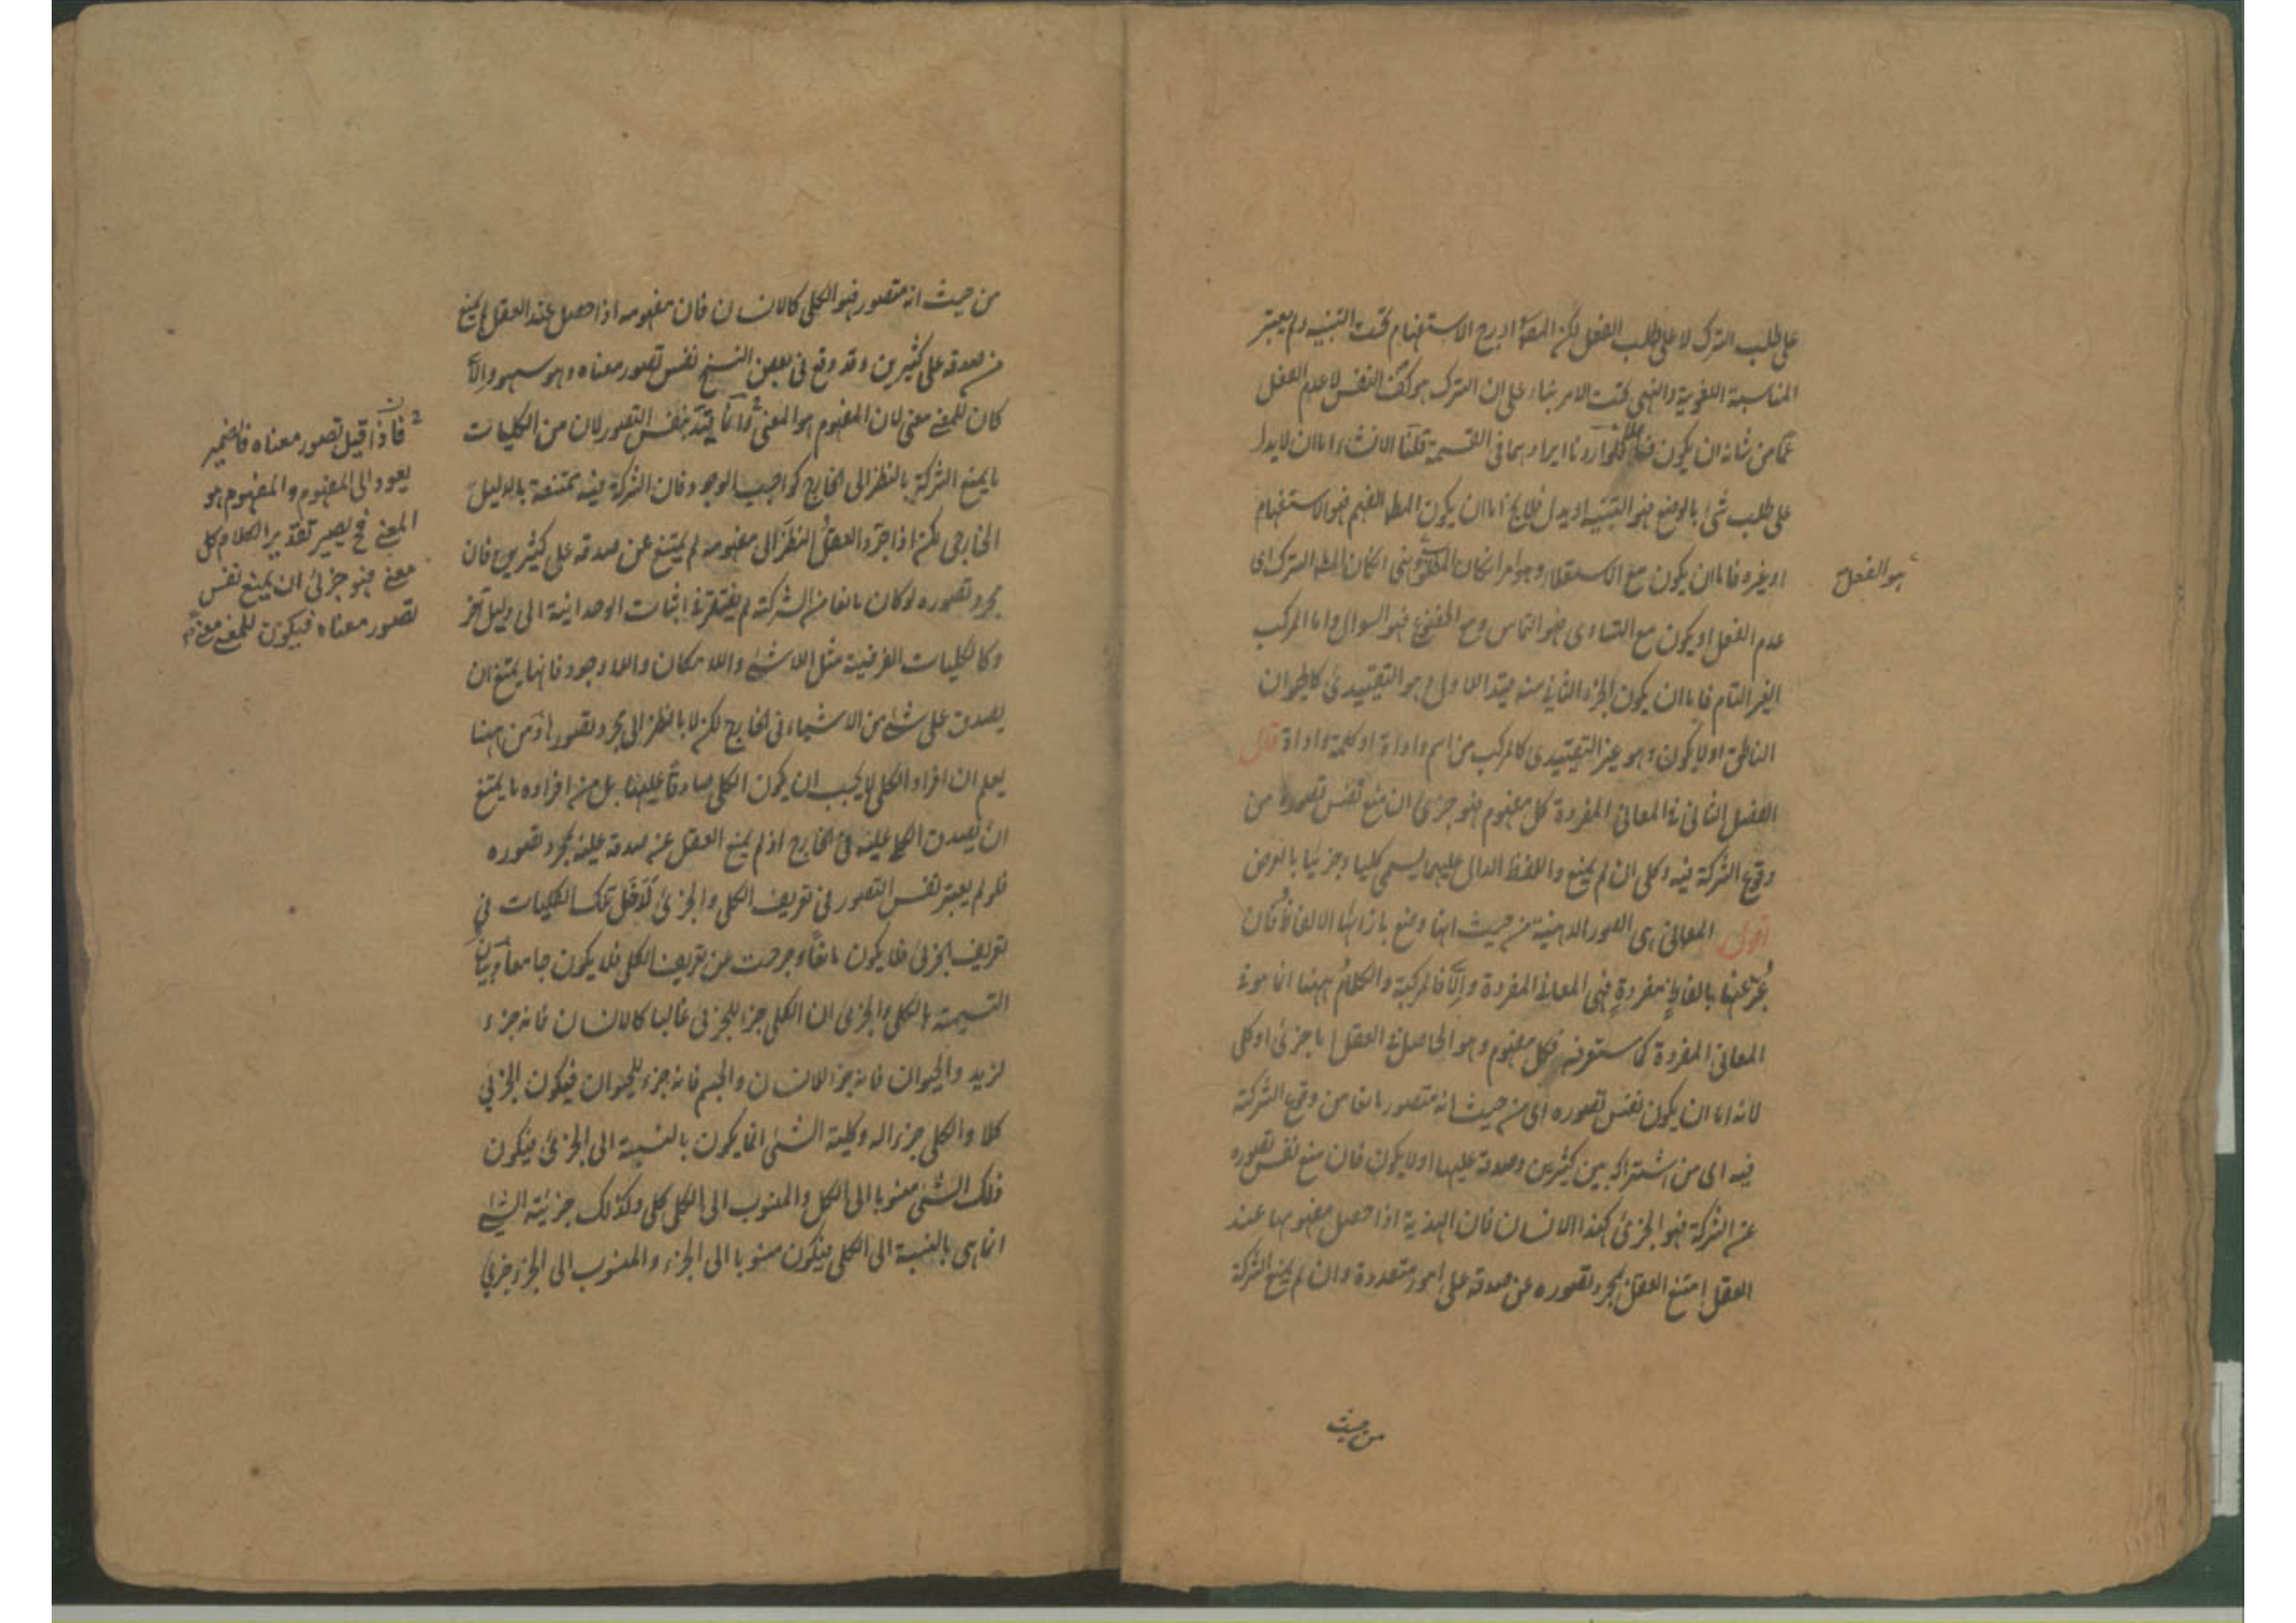 على طلب الترك لا على طلب الفعل لكن المصـ ادرج الاستفهام تحت التنبيه ولم يعتبر
المناسبة اللغوية والنهى تحت الامر بناء على ان الترك هو كف النفس لا عدم الفعل
عما من شانه ان يكون فاعلا ولو اردنا ايرادهما فى القسمة قلنا الانشاء اما ان لا يدل
على طلب شئ بالوضع فهو التنبيه او يدل فلا يخ اما ان يكون المط الفهم فهو الاستفهام
او غيره فاما ان يكون مع الاستعلاء وهو امر ان كان المط ونهى ان كان المط الترك اى
هو الفعل
عدم الفعل او يكون مع التساوى فهو التماس ومع الخضوع فهو السوال واما المركب
الغير التام فاما ان يكون الجزء الثانى منه قيدا للاول وهو التقييدى كالحيوان
الناطق او لا يكون وهو غير التقييدى كالمركب من اسم واداة او كلمة واداة قال
الفصل الثانى فى المعانى المفردة كل مفهوم فهو جزئى ان منع نفس تصوره من
وقوع الشركة فيه وكلى ان لم يمنع واللفظ الدال عليهما يسمى كليا وجزئيا بالعرض
اقول المعانى هى الصور الذهنية من حيث انها وضع بازائها الالفاظ فان
عُبّر عنها بالفاظٍ مفردةٍ فهى المعانى المفردة والّا فالمركبة والكلامُ ههنا انما هو فى
المعانى المفردة كما ستعرفه فكل مفهوم وهو الحاصل فى العقل اما جزئى او كلى
لانه اما ان يكون نفس تصوره اى من حيث انه متصور مانعا من وقوع الشركة
فيه اى من اشتراكه بين كثيرين وصدقه عليها او لا يكون فان منع نفس تصوره
عن الشركة فهو الجزئى كهذا الانسان فان الهذية اذا حصل مفهومها عند
العقل امتنع العقل بمجرد تصوره عن صدقه على امور متعددة وان لم يمنع الشركة
من حيث
من حيث انه متصور فهو الكلى كالانسان فان مفهومه اذا حصل عند العقل لم يمنع
من صدقه على كثيرين وقد وقع فى بعض النسخ نفس تصور معناه وهو سهو والّا
كان للمعنى معنى لان المفهوم هو المعنى وانما قيّد بنفس التصور لان من الكليات
ما يمنع الشركة بالنظر الى الخارج كواجب الوجود فان الشركة فيه ممتنعة بالدليل
الخارجى لكن اذا جرّد العقلُ النظرَ الى مفهومه لم يمتنع عن صدقه على كثيرين فان
مجرد تصوره لو كان مانعا من الشركة لم يفتقر فى اثبات الوحدانية الى دليل آخر
وكالكليات الفرضية مثل اللاشئ واللاامكان واللاوجود فانها يمتنع ان
يصدق على شئ من الاشياء فى الخارج لكن لا بالنظر الى مجرد تصورها ومن ههنا
يعلم ان افراد الكلى لا يجب ان يكون الكلى صادقًا عليها بل من افراده ما يمتنع
ان يصدق الكلى عليه فى الخارج اذ لم يمنع العقل عن صدقه عليه بمجرد تصوره
فلو لم يعتبر نفس التصور فى تعريف الكلى والجزئى لدَخَل تلك الكليات فى
تعريف الجزئى فلا يكون مانعًا وخرجت عن تعريف الكلى فلا يكون جامعا وبيان
التسمية بالكلى والجزئى ان الكلى جزء للجزئى غالبا كالانسان فانه جزء
لزيد والحيوان فانه جزء للانسان والجسم فانه جزء للحيوان فيكون الجزئى
كلا والكلى جزءا له وكلية الشئ انما يكون بالنسبة الى الجزئى فيكون
ذلك الشئ منسوبا الى الكل والمنسوب الى الكل كلى وكذلك جزئية الشئ
انما هى بالنسبة الى الكلى فيكون منسوبا الى الجزء والمنسوب الى الجزء جزئى
فاذا قيل تصور معناه فالضمير
يعود الى المفهوم والمفهوم هو
المعنى فح يصير تقدير الكلام كل
معنى فهو جزئى ان يمنع نفس
تصور معناه فيكون للمعنى معنى